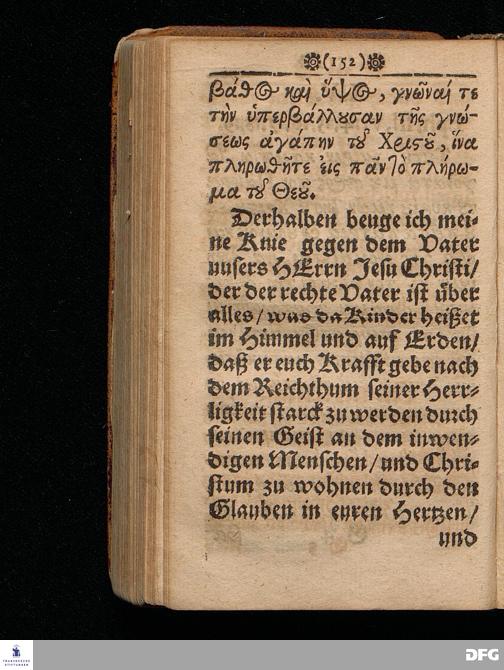 (152)
βάθος καὶ ὕψος, γνῶναί τε
τὴν ὑπερβάλλουσαν τῆς γνώ-
σεως ἀγάπην τοῦ Χριστοῦ, ἵνα
πληρωθῆτε εἰς πᾶν τὸ πλήρω-
μα τοῦ Θεοῦ.
Derhalben beuge ich mei-
ne Knie gegen dem Vater
unsers HErrn Jesu Christi/
der der rechte Vater ist über
alles/ was da Kinder heißet
im Himmel und auf Erden/
daß er euch Krafft gebe nach
dem Reichthum seiner Herr-
ligkeit starck zu werden durch
seinen Geist an dem inwen-
digen Menschen/ und Chri-
stum zu wohnen durch den
Glauben in euren Hertzen/
und
FRANCKESCHE
STIFTUNGEN
DFG